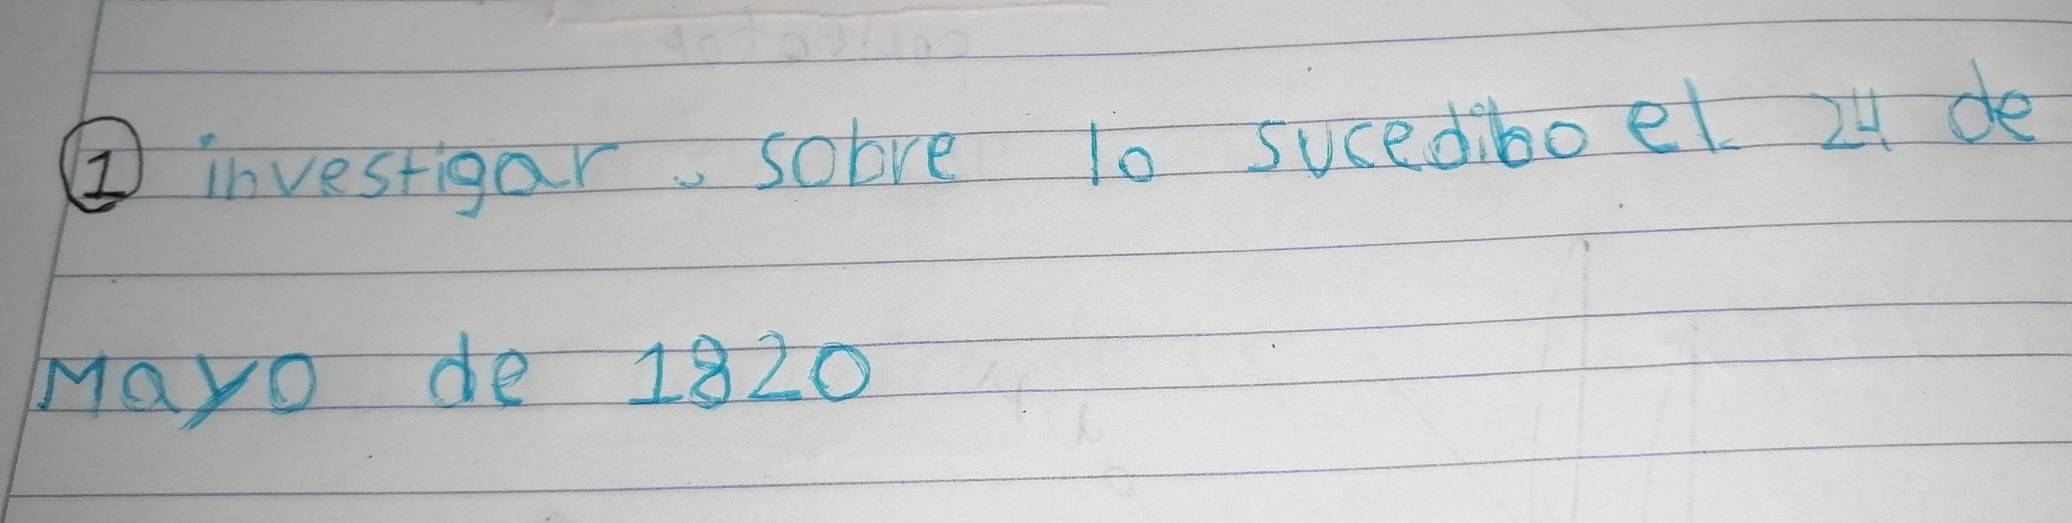 ① investigar sobre lo sucedibo el 24 de
Mayo de 1820